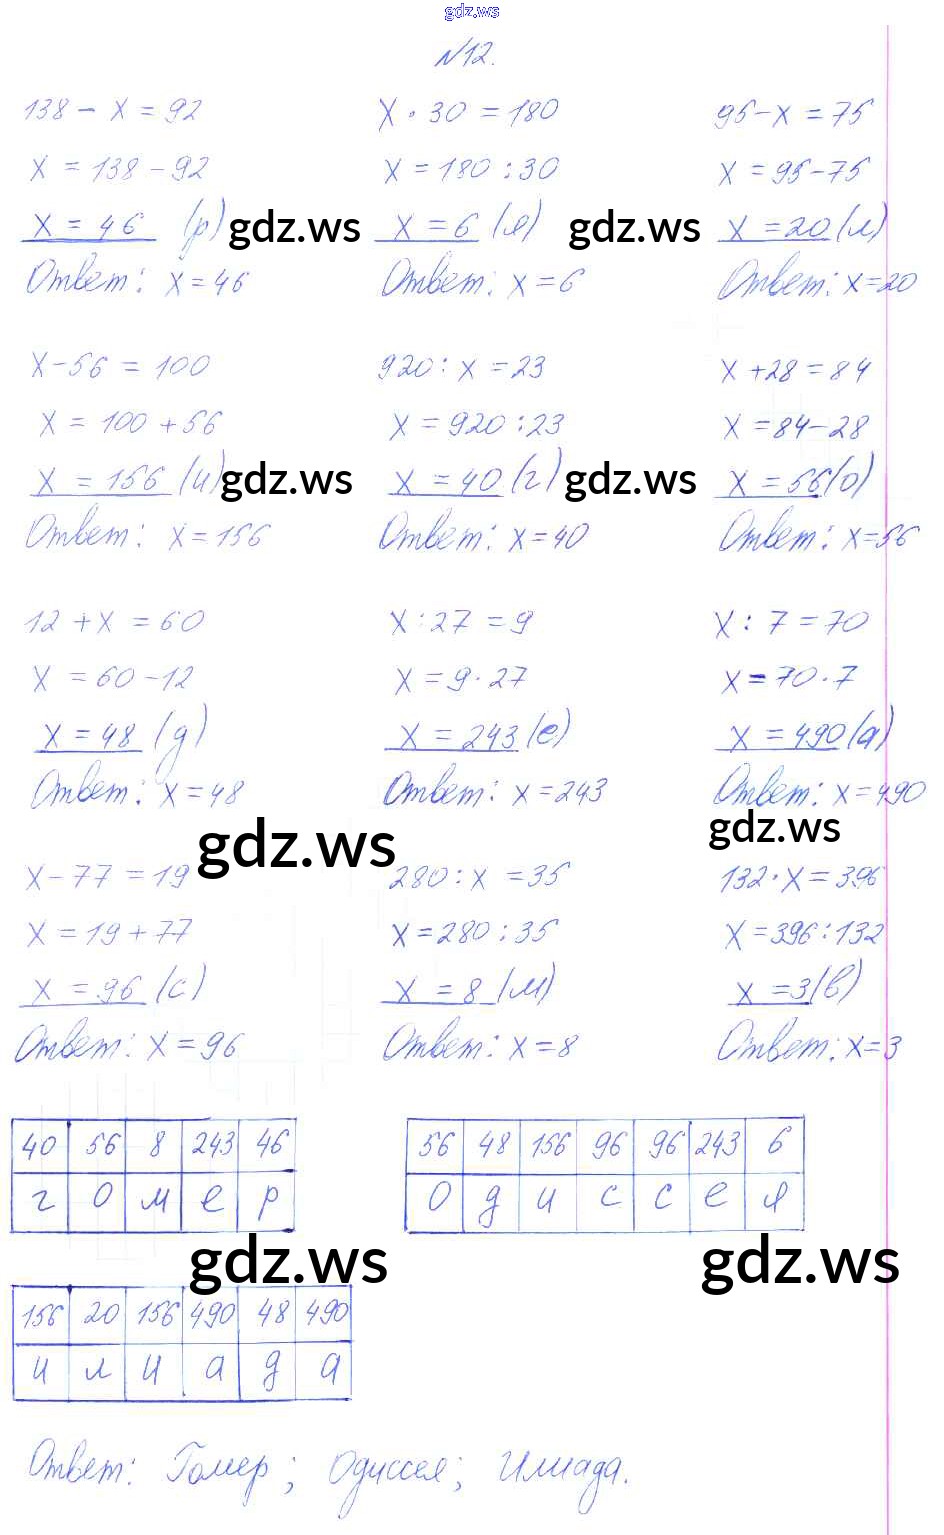 gdz.ws
№12.
138 - x = 92
x = 138 - 92
x = 46 (р) gdz.ws
Ответ: x = 46
x · 30 = 180
x = 180 : 30
x = 6 (я) gdz.ws
Ответ: x = 6
95 - x = 75
x = 95 - 75
x = 20 (л)
Ответ: x = 20
x - 56 = 100
x = 100 + 56
x = 156 (и) gdz.ws
Ответ: x = 156
920 : x = 23
x = 920 : 23
x = 40 (г) gdz.ws
Ответ: x = 40
x + 28 = 84
x = 84 - 28
x = 56 (о)
Ответ: x = 56
12 + x = 60
x = 60 - 12
x = 48 (д)
Ответ: x = 48
x : 27 = 9
x = 9 · 27
x = 243 (е)
Ответ: x = 243
x : 7 = 70
x = 70 · 7
x = 490 (а)
Ответ: x = 490
gdz.ws
gdz.ws
x - 77 = 19
x = 19 + 77
x = 96 (с)
Ответ: x = 96
280 : x = 35
x = 280 : 35
x = 8 (м)
Ответ: x = 8
132 · x = 396
x = 396 : 132
x = 3 (в)
Ответ: x = 3
40 56 8 243 46
г о м е р
56 48 156 96 96 243 6
о д и с с е я
gdz.ws
gdz.ws
156 20 156 490 48 490
и л и а д а
Ответ: Гомер; Одиссея; Илиада.